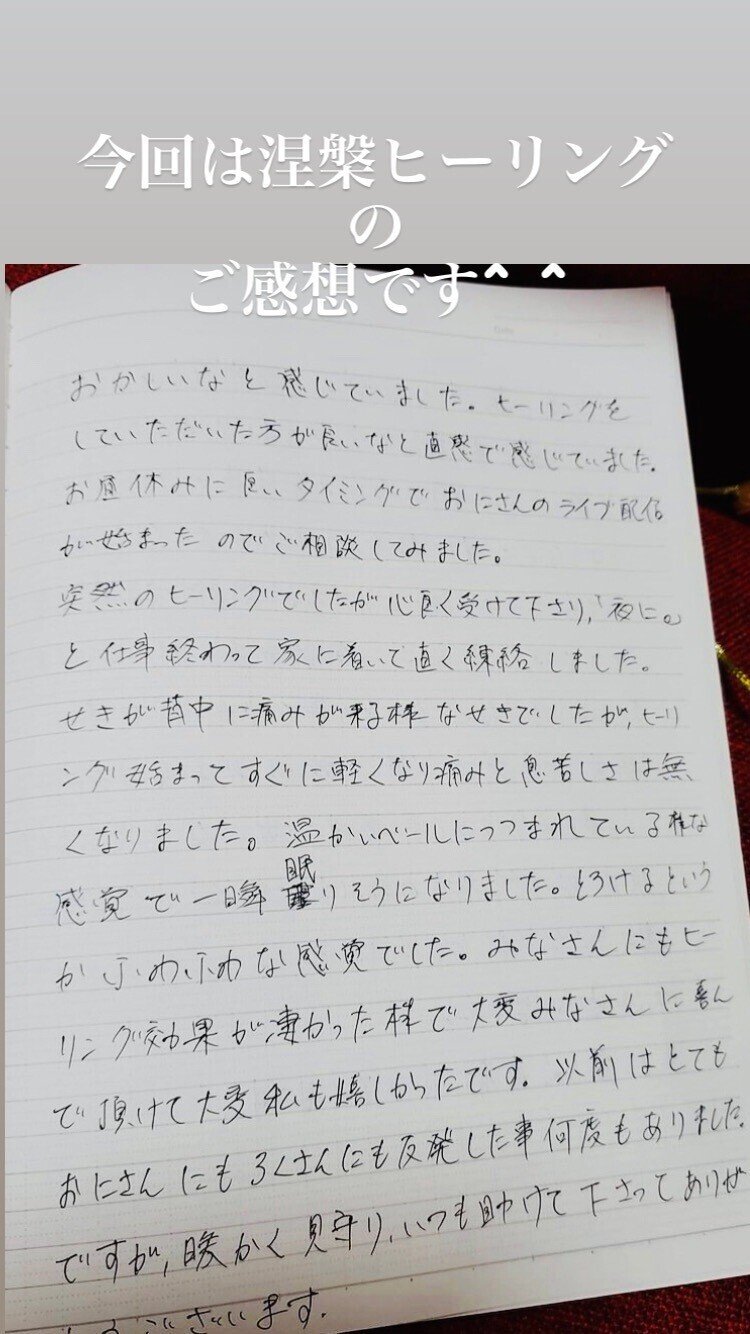 今回は涅槃ヒーリング
の
ご感想です^ ^
おかしいなと感じていました。ヒーリングを
していただいた方が良いなと直感で感じていました。
お昼休みに良いタイミングでおにさんのライブ配信
が始まったのでご相談してみました。
突然のヒーリングでしたが心良く受けて下さり、「夜に。」
と仕事終わって家に着いて直く練絡しました。
せきが背中に痛みが来る様なせきでしたが、ヒーリ
ング始まってすぐに軽くなり痛みと息苦しさは無
くなりました。温かいベールにつつまれている様な
感覚で一瞬眠りそうになりました。とろけるという
かふわふわな感覚でした。みなさんにもヒー
リング効果が凄かった様で大変みなさんに喜ん
で頂けて大変私も嬉しかったです。以前はとても
おにさんにもろくさんにも反発した事何度もありました。
ですが、暖かく見守り、いつも助けて下さってありが
とうございます。